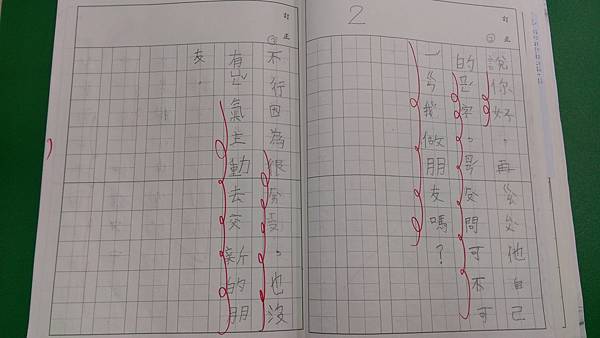 2
訂正
說你好。再他自己
的字。問可不可
我做朋友嗎？
訂正
不行因為很害羞。也沒
有氣主動去交新的朋
友。